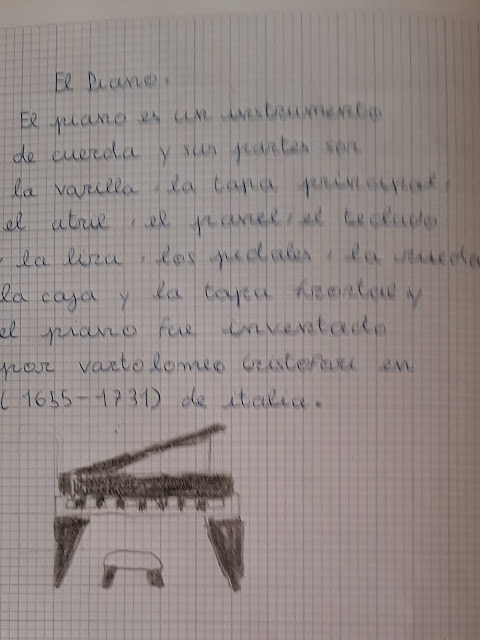 El Piano.
El piano es un instrumento
de cuerda y sus partes son
la varilla, la tapa principal,
el atril, el panel, el teclado
, la lira, los pedales, la rueda
la caja y la tapa frontal y
el piano fue inventado
por vartolomeo Cristofari en
(1655-1731) de italia.